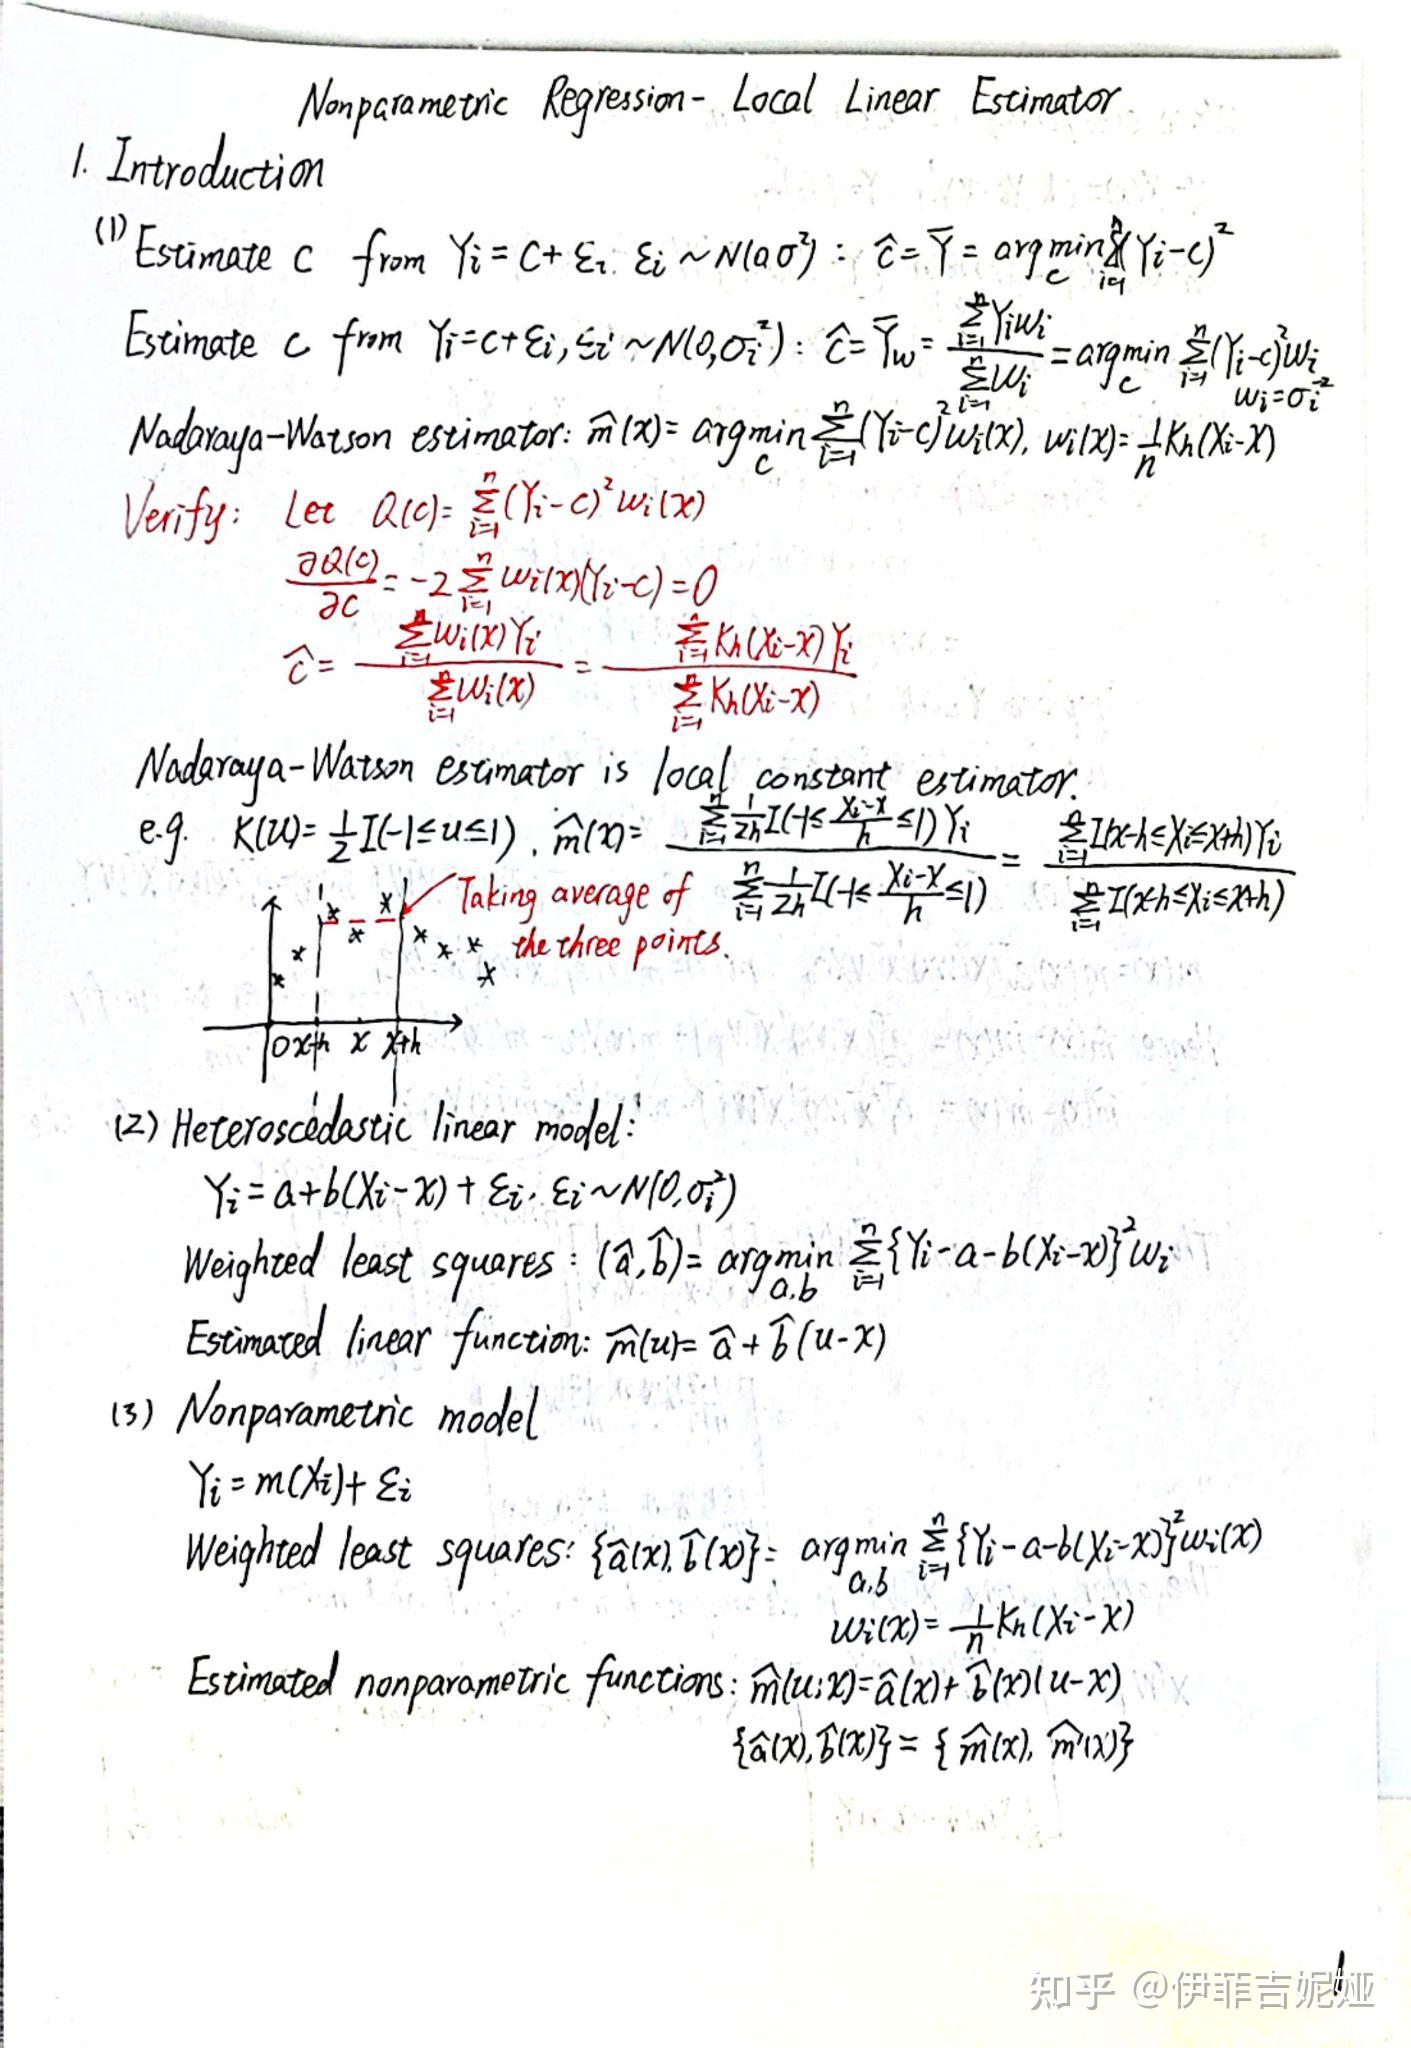 Nonparametric Regression - Local Linear Estimator
1. Introduction
(1) Estimate c from Yi = C + εi. εi ~ N(0, σ²) : ĉ = Ȳ = argmin_c Σ_{i=1}^n (Yi-c)²
Estimate c from Yi = c + εi, εi ~ N(0, σi²) : ĉ = Ȳw = Σ_{i=1}^n Yiwi / Σ_{i=1}^n wi = argmin_c Σ_{i=1}^n (Yi-c)²wi
wi = σi⁻²
Nadaraya-Watson estimator: m̂(x) = argmin_c Σ_{i=1}^n (Yi-c)²wi(x), wi(x) = 1/n Kh(Xi-x)
Verify: Let Q(c) = Σ_{i=1}^n (Yi-c)² wi(x)
∂Q(c)/∂c = -2 Σ_{i=1}^n wi(x)(Yi-c) = 0
ĉ = Σ_{i=1}^n wi(x)Yi / Σ_{i=1}^n wi(x) = Σ_{i=1}^n Kh(Xi-x)Yi / Σ_{i=1}^n Kh(Xi-x)
Nadaraya-Watson estimator is local constant estimator.
e.g. K(u) = 1/2 I(-1≤u≤1). m̂(x) = Σ_{i=1}^n 1/2h I(-1≤ (Xi-x)/h ≤1)Yi / Σ_{i=1}^n 1/2h I(-1≤ (Xi-x)/h ≤1) = Σ_{i=1}^n I(x-h≤Xi≤x+h)Yi / Σ_{i=1}^n I(x-h≤Xi≤x+h)
Taking average of
the three points.
0 x-h x x+h
(2) Heteroscedastic linear model:
Yi = a+b(Xi-x) + εi. εi ~ N(0, σi²)
Weighted least squares : (â, b̂) = argmin_{a,b} Σ_{i=1}^n {Yi-a-b(Xi-x)}² wi
Estimated linear function: m̂(u) = â + b̂(u-x)
(3) Nonparametric model
Yi = m(Xi) + εi
Weighted least squares: {â(x), b̂(x)} = argmin_{a,b} Σ_{i=1}^n {Yi-a-b(Xi-x)}² wi(x)
wi(x) = 1/n Kh(Xi-x)
Estimated nonparametric functions: m̂(u;x) = â(x) + b̂(x)(u-x)
{â(x), b̂(x)} = { m̂(x), m̂'(x)}
1
知乎 @伊菲吉妮娅